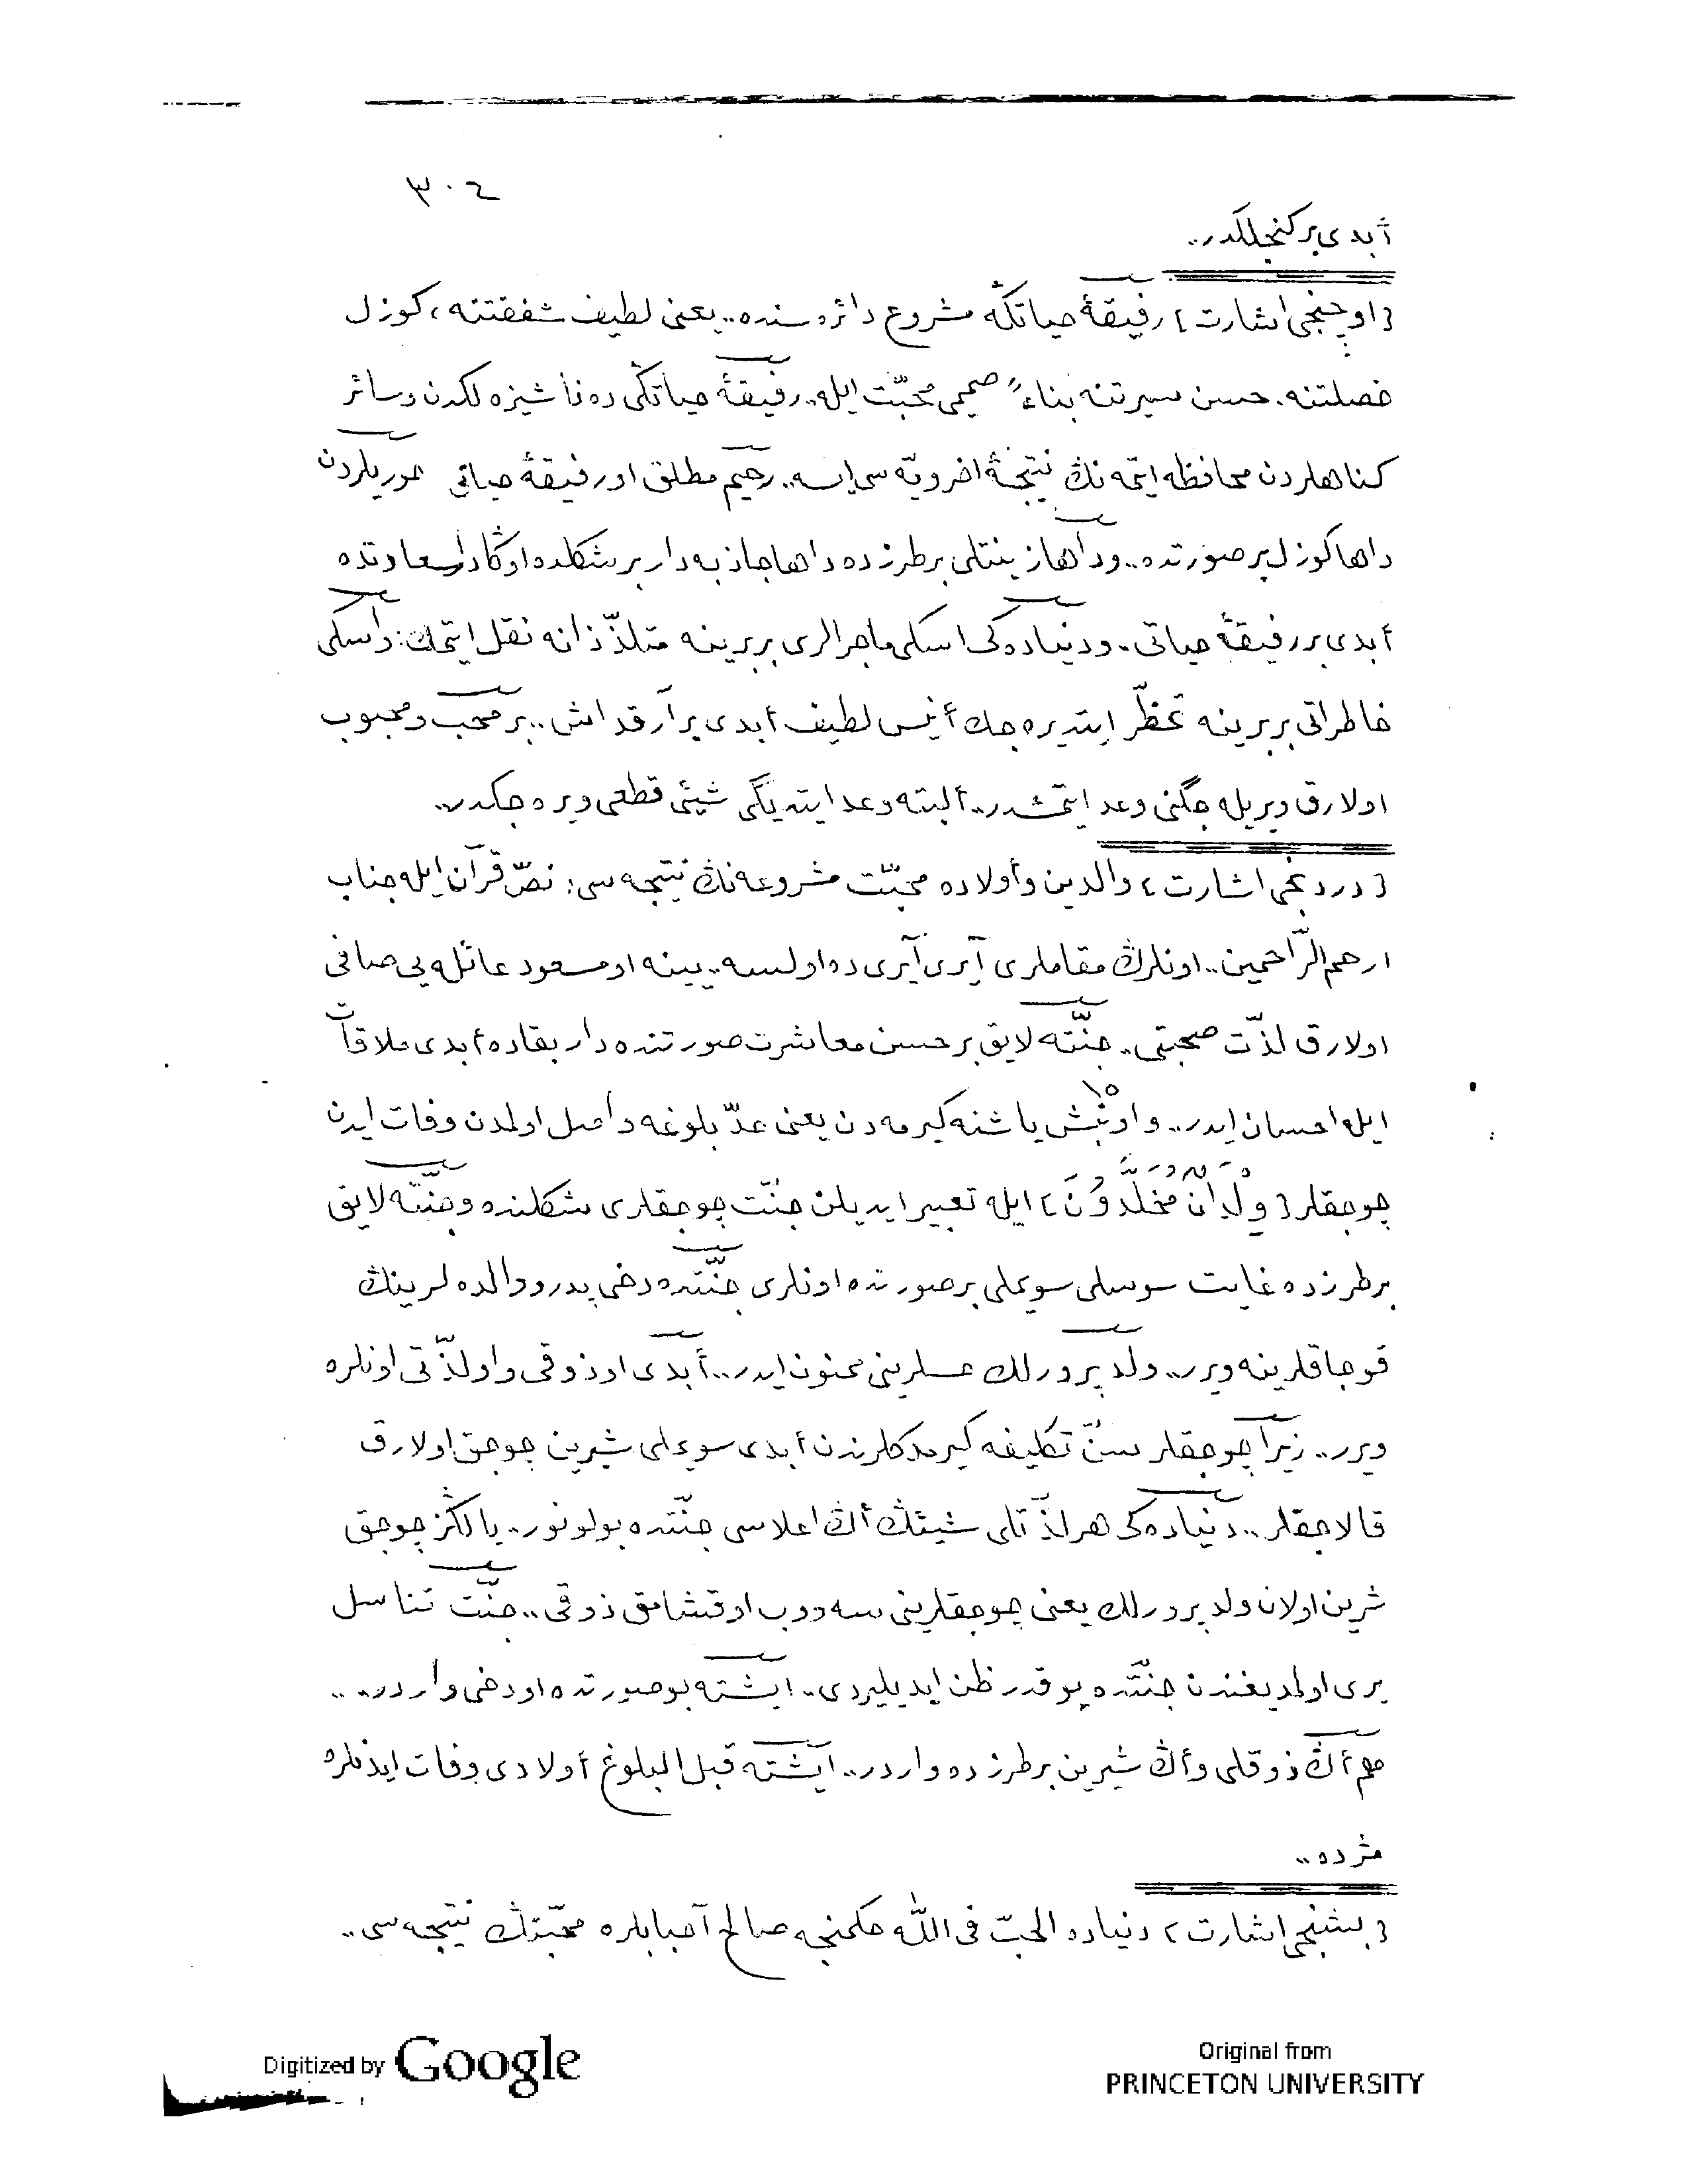 ٣٠٤
أبدى بر كنجلكدر..
{ اوچنجى اشارت } رفيقهٔ حياتڭه مشروع دائره سنده.. يعنى لطيف شفقتنه، كوزل
خصلتنه. حسن سيرتنه بناءً صميمى محبّت ايله.. رفيقهٔ حياتڭى ده ناشيزه لكدن وسائر
كناهلردن محافظه ايتمه نڭ نتيجهٔ اخرويّه سى ايسه.. رحيم مطلق او رفيقهٔ حياتى حوريلردن
داها كوزل بر صورتده.. وداها زينتلى بر طرزده داها جاذبه دار بر شكلده اوڭا دار سعادتده
أبدى بر رفيقهٔ حياتى.. ودنياده كى اسكى ماجرالرى بربرينه متلذّذانه نقل ايتمك: واسكى
خاطراتى بربرينه تخطّر ايتديره جك أنيس لطيف أبدى بر آرقداش.. بر محب ومحبوب
اولارق ويريله جگنى وعد ايتمشدر.. ألبته وعد ايتديگى شيئى قطعى ويره جكدر..
{ دردنجى اشارت } والدين وأولاده محبّت مشروعه نڭ نتيجه سى: نصّ قرآن ايله جناب
ارحم الرّاحمين.. اونلرڭ مقاملرى آيرى آيرى ده اولسه.. يينه او مسعود عائله يى صافى
اولارق لذّت صحبتى.. جنّته لايق بر حسن معاشرت صورتنده دار بقاده أبدى ملاقات
ايله احسان ايدر.. و اونبش ١٥ ياشنه كيرمه دن يعنى حدّ بلوغه واصل اولمدن وفات ايدن
چوجقلر { وِلْدَانٌ مُخَلَّدُونَ } ايله تعبير ايديلن جنّت چوجقلرى شكلنده وجنّته لايق
بر طرزده غايت سوسلى سويملى بر صورتده اونلرى جنّتده دخى پدر ووالده لرينڭ
قوجاقلرينه ويرر.. ولد پرورلك حسلرينى ممنون ايدر.. أبدى او ذوقى و او لذّتى اونلره
ويرر.. زيرا چوجقلر سنّ تكليفه كيرمدكلرندن أبدى سويملى شيرين چوجق اولارق
قالاجقلر.. دنياده كى هر لذّتلى شيئڭ أڭ اعلاسى جنّتده بولونور.. يالڭز چوجق
شرين اولان ولد پرورلك يعنى چوجقلرينى سه ووب اوقشامق ذوقى.. جنّت تناسل
يرى اولمديغندن جنّتده يوقدر ظن ايديليردى.. ايشته بو صورتده او دخى واردر..
هم أڭ ذوقلى وأڭ شيرين بر طرزده واردر.. ايشته قبل البلوغ أولادى وفات ايدنلره
مژده..
{ بشنجى اشارت } دنياده الحبّ فى اللّٰه حكمنجه صالح آحبابلره محبّتڭ نتيجه سى..
Digitized by Google
Original from
PRINCETON UNIVERSITY